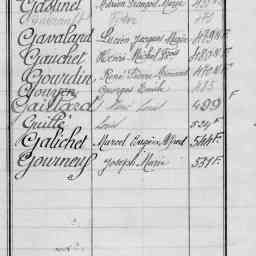 Gastinel Adrien François Marie
Victor
Gavaland Lucien Jacques Marie 479 N F
Gauchet Henri Michel Frs 480 N F
Gourdin René Pierre Armand 470 N F
Gouyen Georges Emile 483
Gaillard Louis 499 F
Guillé Louis 524 F
Galichet Marcel Eugène Alfred 544 F
Gourneuf Joseph Marie 531 F